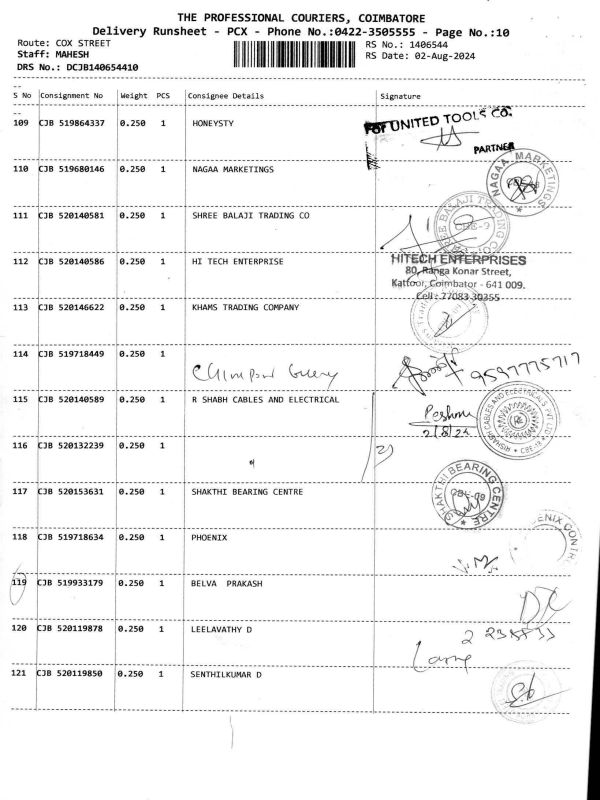 THE PROFESSIONAL COURIERS, COIMBATORE
Delivery Runsheet - PCX - Phone No.:0422-3505555 - Page No.:10
Route: COX STREET RS No.: 1406544
Staff: MAHESH RS Date: 02-Aug-2024
DRS No.: DCJB140654410
S No Consignment No Weight PCS Consignee Details Signature
109 CJB 519864337 0.250 1 HONEYSTY
For UNITED TOOLS CO.
PARTNER
110 CJB 519680146 0.250 1 NAGAA MARKETINGS
NAGAA MARKETINGS
111 CJB 520140581 0.250 1 SHREE BALAJI TRADING CO
SHREE BALAJI TRADING CO. CBE-9
112 CJB 520140586 0.250 1 HI TECH ENTERPRISE
HITECH ENTERPRISES
80, Ranga Konar Street,
Kattoor, Coimbator - 641 009.
Cell: 77083 30355
113 CJB 520146622 0.250 1 KHAMS TRADING COMPANY
114 CJB 519718449 0.250 1
9597775717
115 CJB 520140589 0.250 1 R SHABH CABLES AND ELECTRICAL
Reshma
2/8/24
RISHABH CABLES AND ELECTRICALS PVT. LTD. CBE-18
116 CJB 520132239 0.250 1
117 CJB 520153631 0.250 1 SHAKTHI BEARING CENTRE
SHAKTHI BEARING CENTRE CBE-09
118 CJB 519718634 0.250 1 PHOENIX
ENIX CONTR
119 CJB 519933179 0.250 1 BELVA PRAKASH
120 CJB 520119878 0.250 1 LEELAVATHY D
121 CJB 520119850 0.250 1 SENTHILKUMAR D